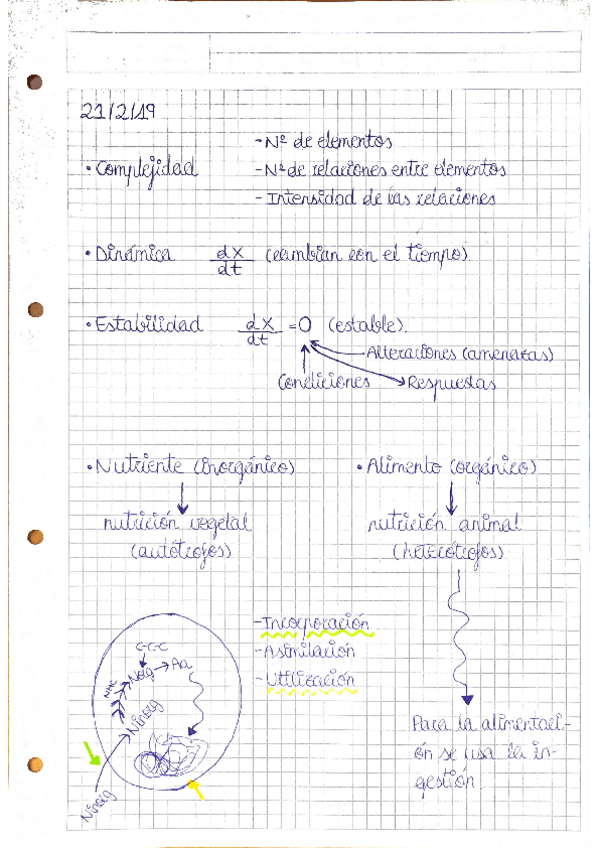 21/2/19
- Nº de elementos
• Complejidad - Nº de relaciones entre elementos
- Intensidad de las relaciones
• Dinámica dX/dt (cambian con el tiempo)
• Estabilidad dX/dt = 0 (estable).
Alteraciones (amenazas)
Condiciones Respuestas
• Nutriente (inorgánico) • Alimento (orgánico)
nutrición vegetal nutrición animal
(autótrofos) (heterótrofos)
- Incorporación
C-C-C - Asimilación
Norg → Aa - Utilización
NHC
Ninorg
Para la alimentaci-
ón se usa la in-
gestión.
Ninorg